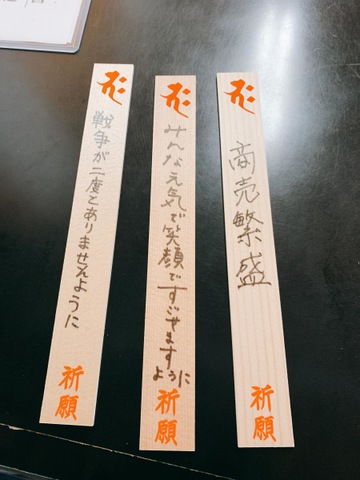 商売繁盛
祈願
みんな元気で笑顔で
すごせます
ように
祈願
戦争が二度とありませんように
祈願